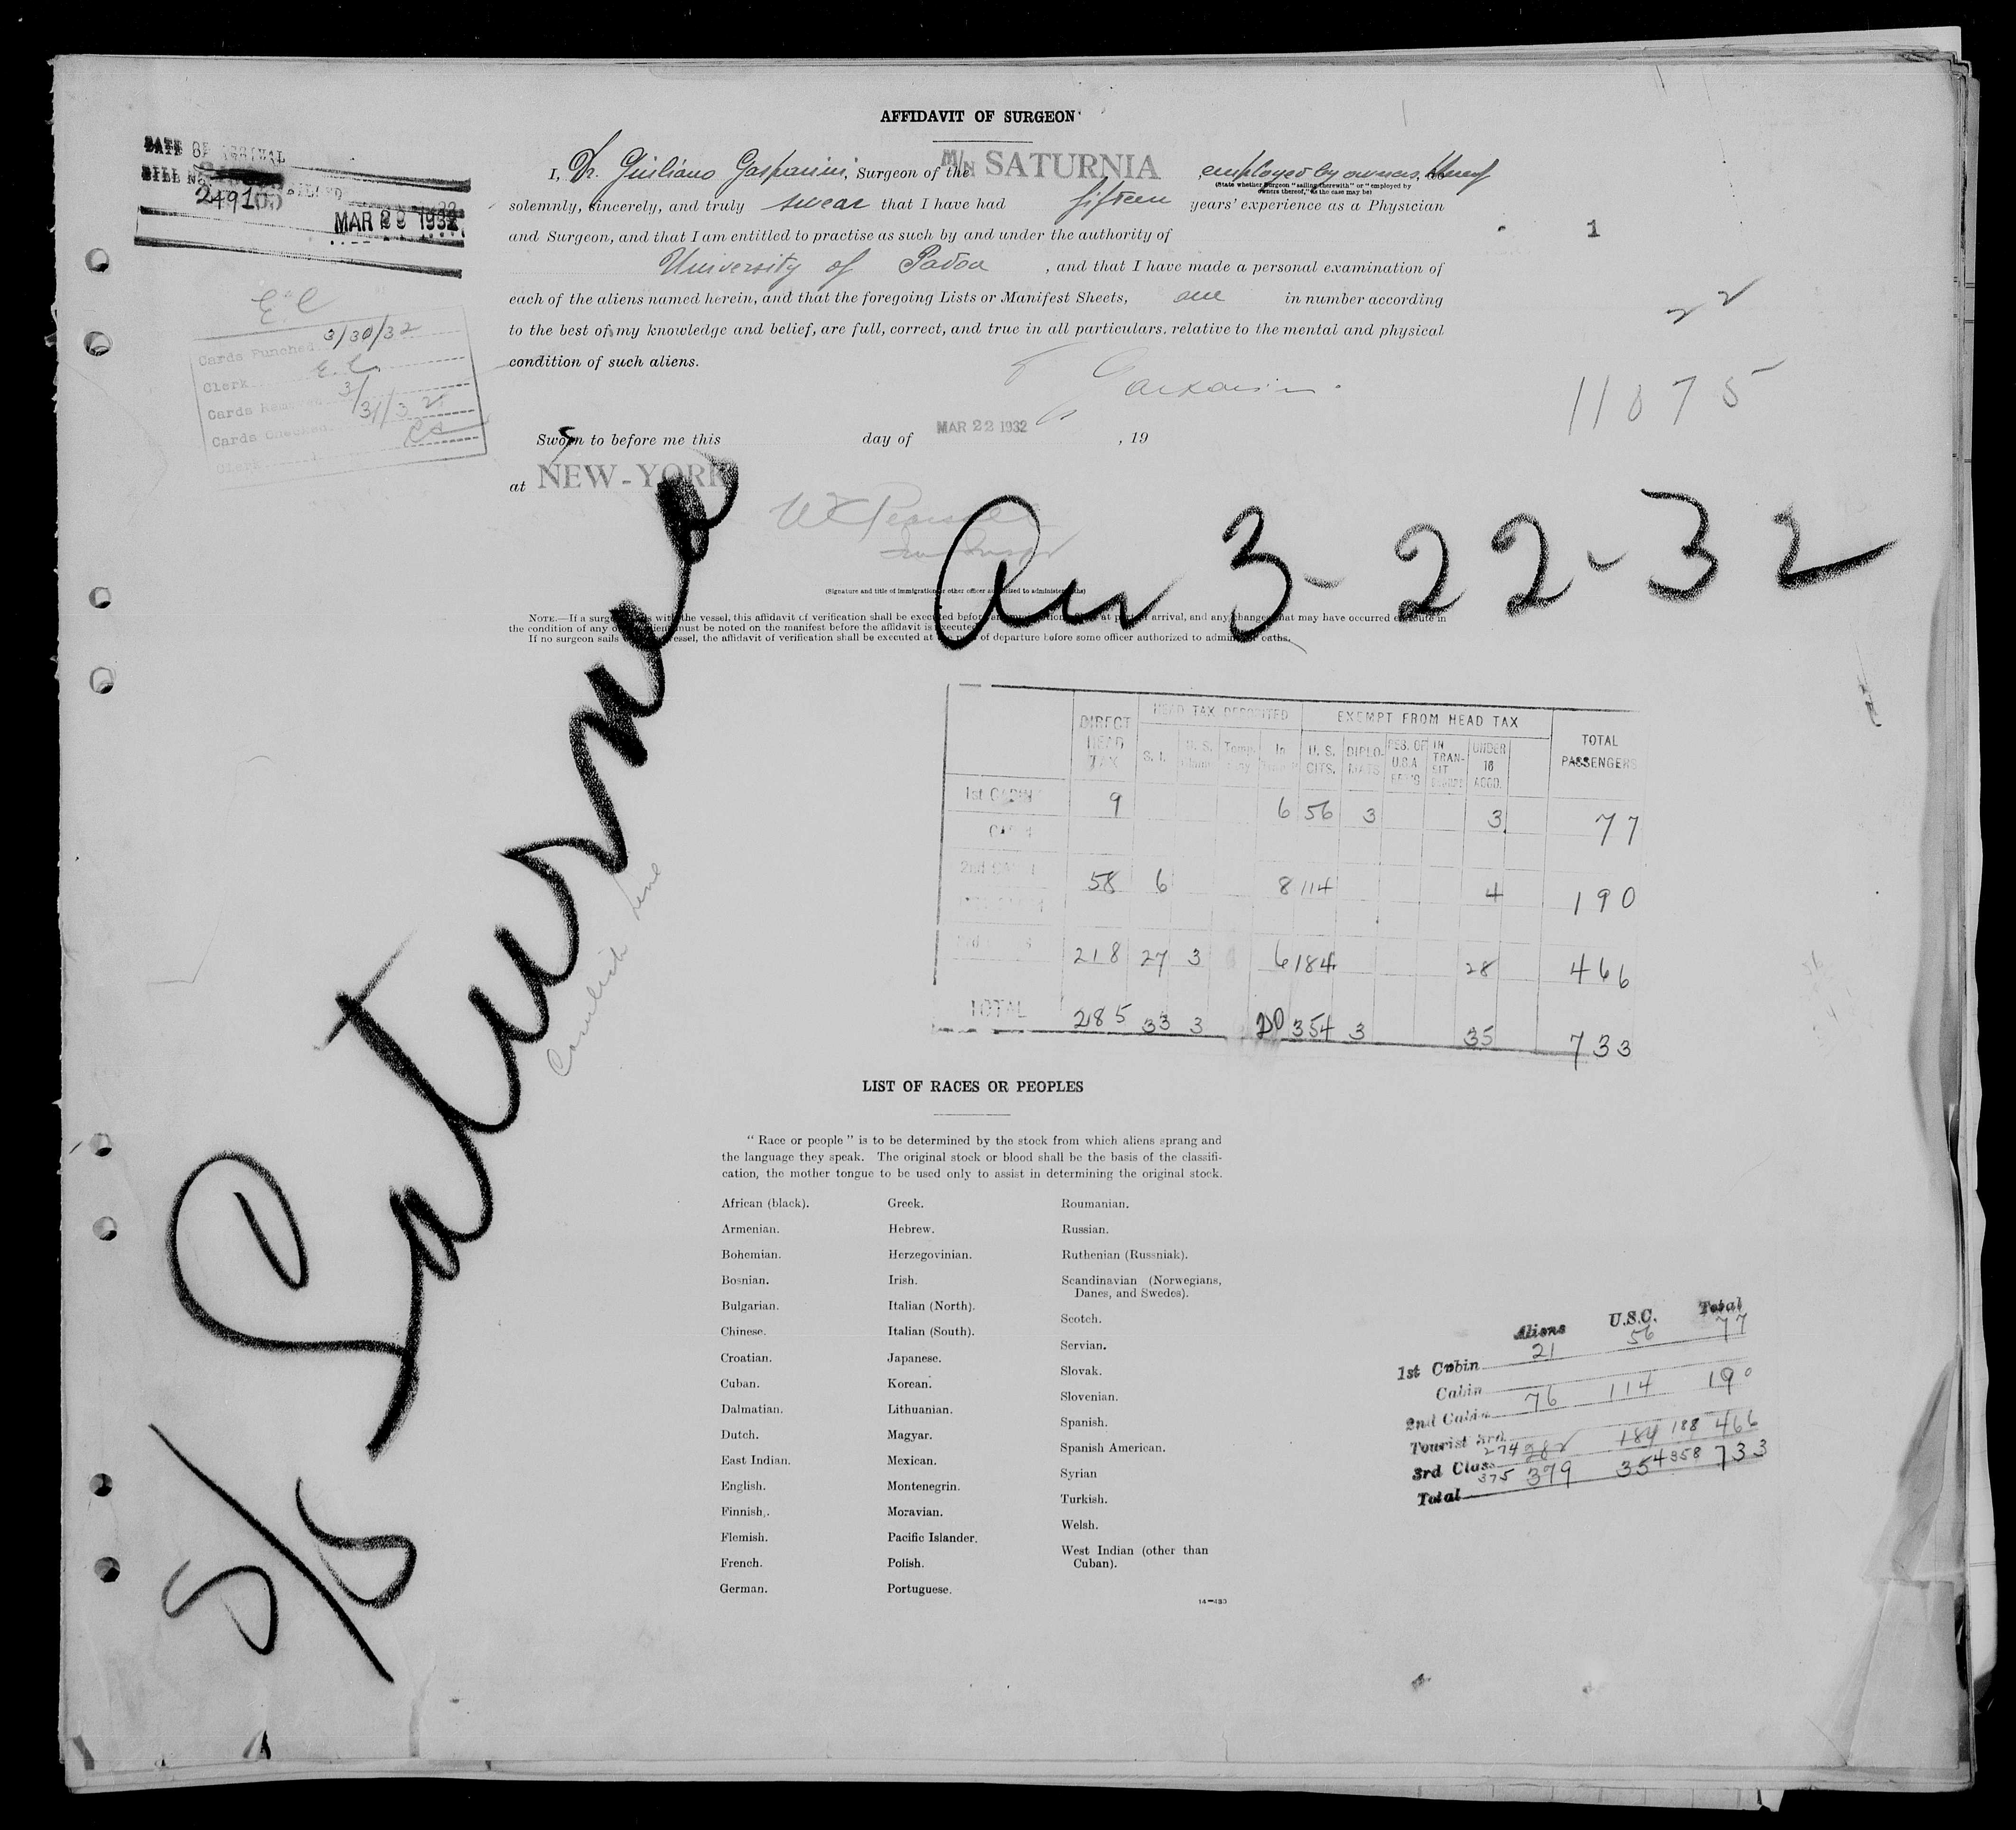 AFFIDAVIT OF SURGEON
DATE OF ARRIVAL
BILL No.
249103
MAR 29 1932
I, Dr. Giuliano Gasparini, Surgeon of the M/N SATURNIA, employed by owners, thereof
(State whether Surgeon "sailing therewith" or "employed by owners thereof," as the case may be)
solemnly, sincerely, and truly swear that I have had fifteen years' experience as a Physician
and Surgeon, and that I am entitled to practise as such by and under the authority of
University of Padoa, and that I have made a personal examination of
each of the aliens named herein, and that the foregoing Lists or Manifest Sheets, one in number according
to the best of my knowledge and belief, are full, correct, and true in all particulars. relative to the mental and physical
condition of such aliens.
1
22
11075
E.C
Cards Punched 3/30/32
Clerk E.C.
Cards 3/31/32
Cards Checked
Clerk
Sworn to before me this day of MAR 22 1932, 19
at NEW-YORK
Arr 3-22-32
(Signature and title of immigration or other officer authorized to administer oaths)
NOTE.—If a surgeon sails with the vessel, this affidavit of verification shall be executed before an immigration officer at port of arrival, and any changes that may have occurred en route in
the condition of any of the aliens must be noted on the manifest before the affidavit is executed.
If no surgeon sails with the vessel, the affidavit of verification shall be executed at the port of departure before some officer authorized to administer oaths.
S/S Saturnia
Cosulich Line
DIRECT HEAD TAX HEAD TAX DEPOSITED EXEMPT FROM HEAD TAX TOTAL PASSENGERS
S. I. U. S. Temp. In U. S. CITS. DIPLOMATS RES. OF U.S.A. IN TRANSIT UNDER 16 ACCD.
1st CABIN 9 6 56 3 3 77
CABIN
2nd CABIN 58 6 8 114 4 190
3rd CLASS 218 27 3 6 184 28 466
TOTAL 285 33 3 20 354 3 35 733
LIST OF RACES OR PEOPLES
"Race or people" is to be determined by the stock from which aliens sprang and
the language they speak. The original stock or blood shall be the basis of the classifi-
cation, the mother tongue to be used only to assist in determining the original stock.
African (black).
Armenian.
Bohemian.
Bosnian.
Bulgarian.
Chinese.
Croatian.
Cuban.
Dalmatian.
Dutch.
East Indian.
English.
Finnish.
Flemish.
French.
German.
Greek.
Hebrew.
Herzegovinian.
Irish.
Italian (North).
Italian (South).
Japanese.
Korean.
Lithuanian.
Magyar.
Mexican.
Montenegrin.
Moravian.
Pacific Islander.
Polish.
Portuguese.
Roumanian.
Russian.
Ruthenian (Russniak).
Scandinavian (Norwegians,
Danes, and Swedes).
Scotch.
Servian.
Slovak.
Slovenian.
Spanish.
Spanish American.
Syrian
Turkish.
Welsh.
West Indian (other than
Cuban).
14—430
Aliens U.S.C. Total
1st Cabin 21 56 77
Cabin
2nd Cabin 76 114 190
Tourist 3rd
3rd Class 274 282 184 188 466
Total 375 379 354 358 733